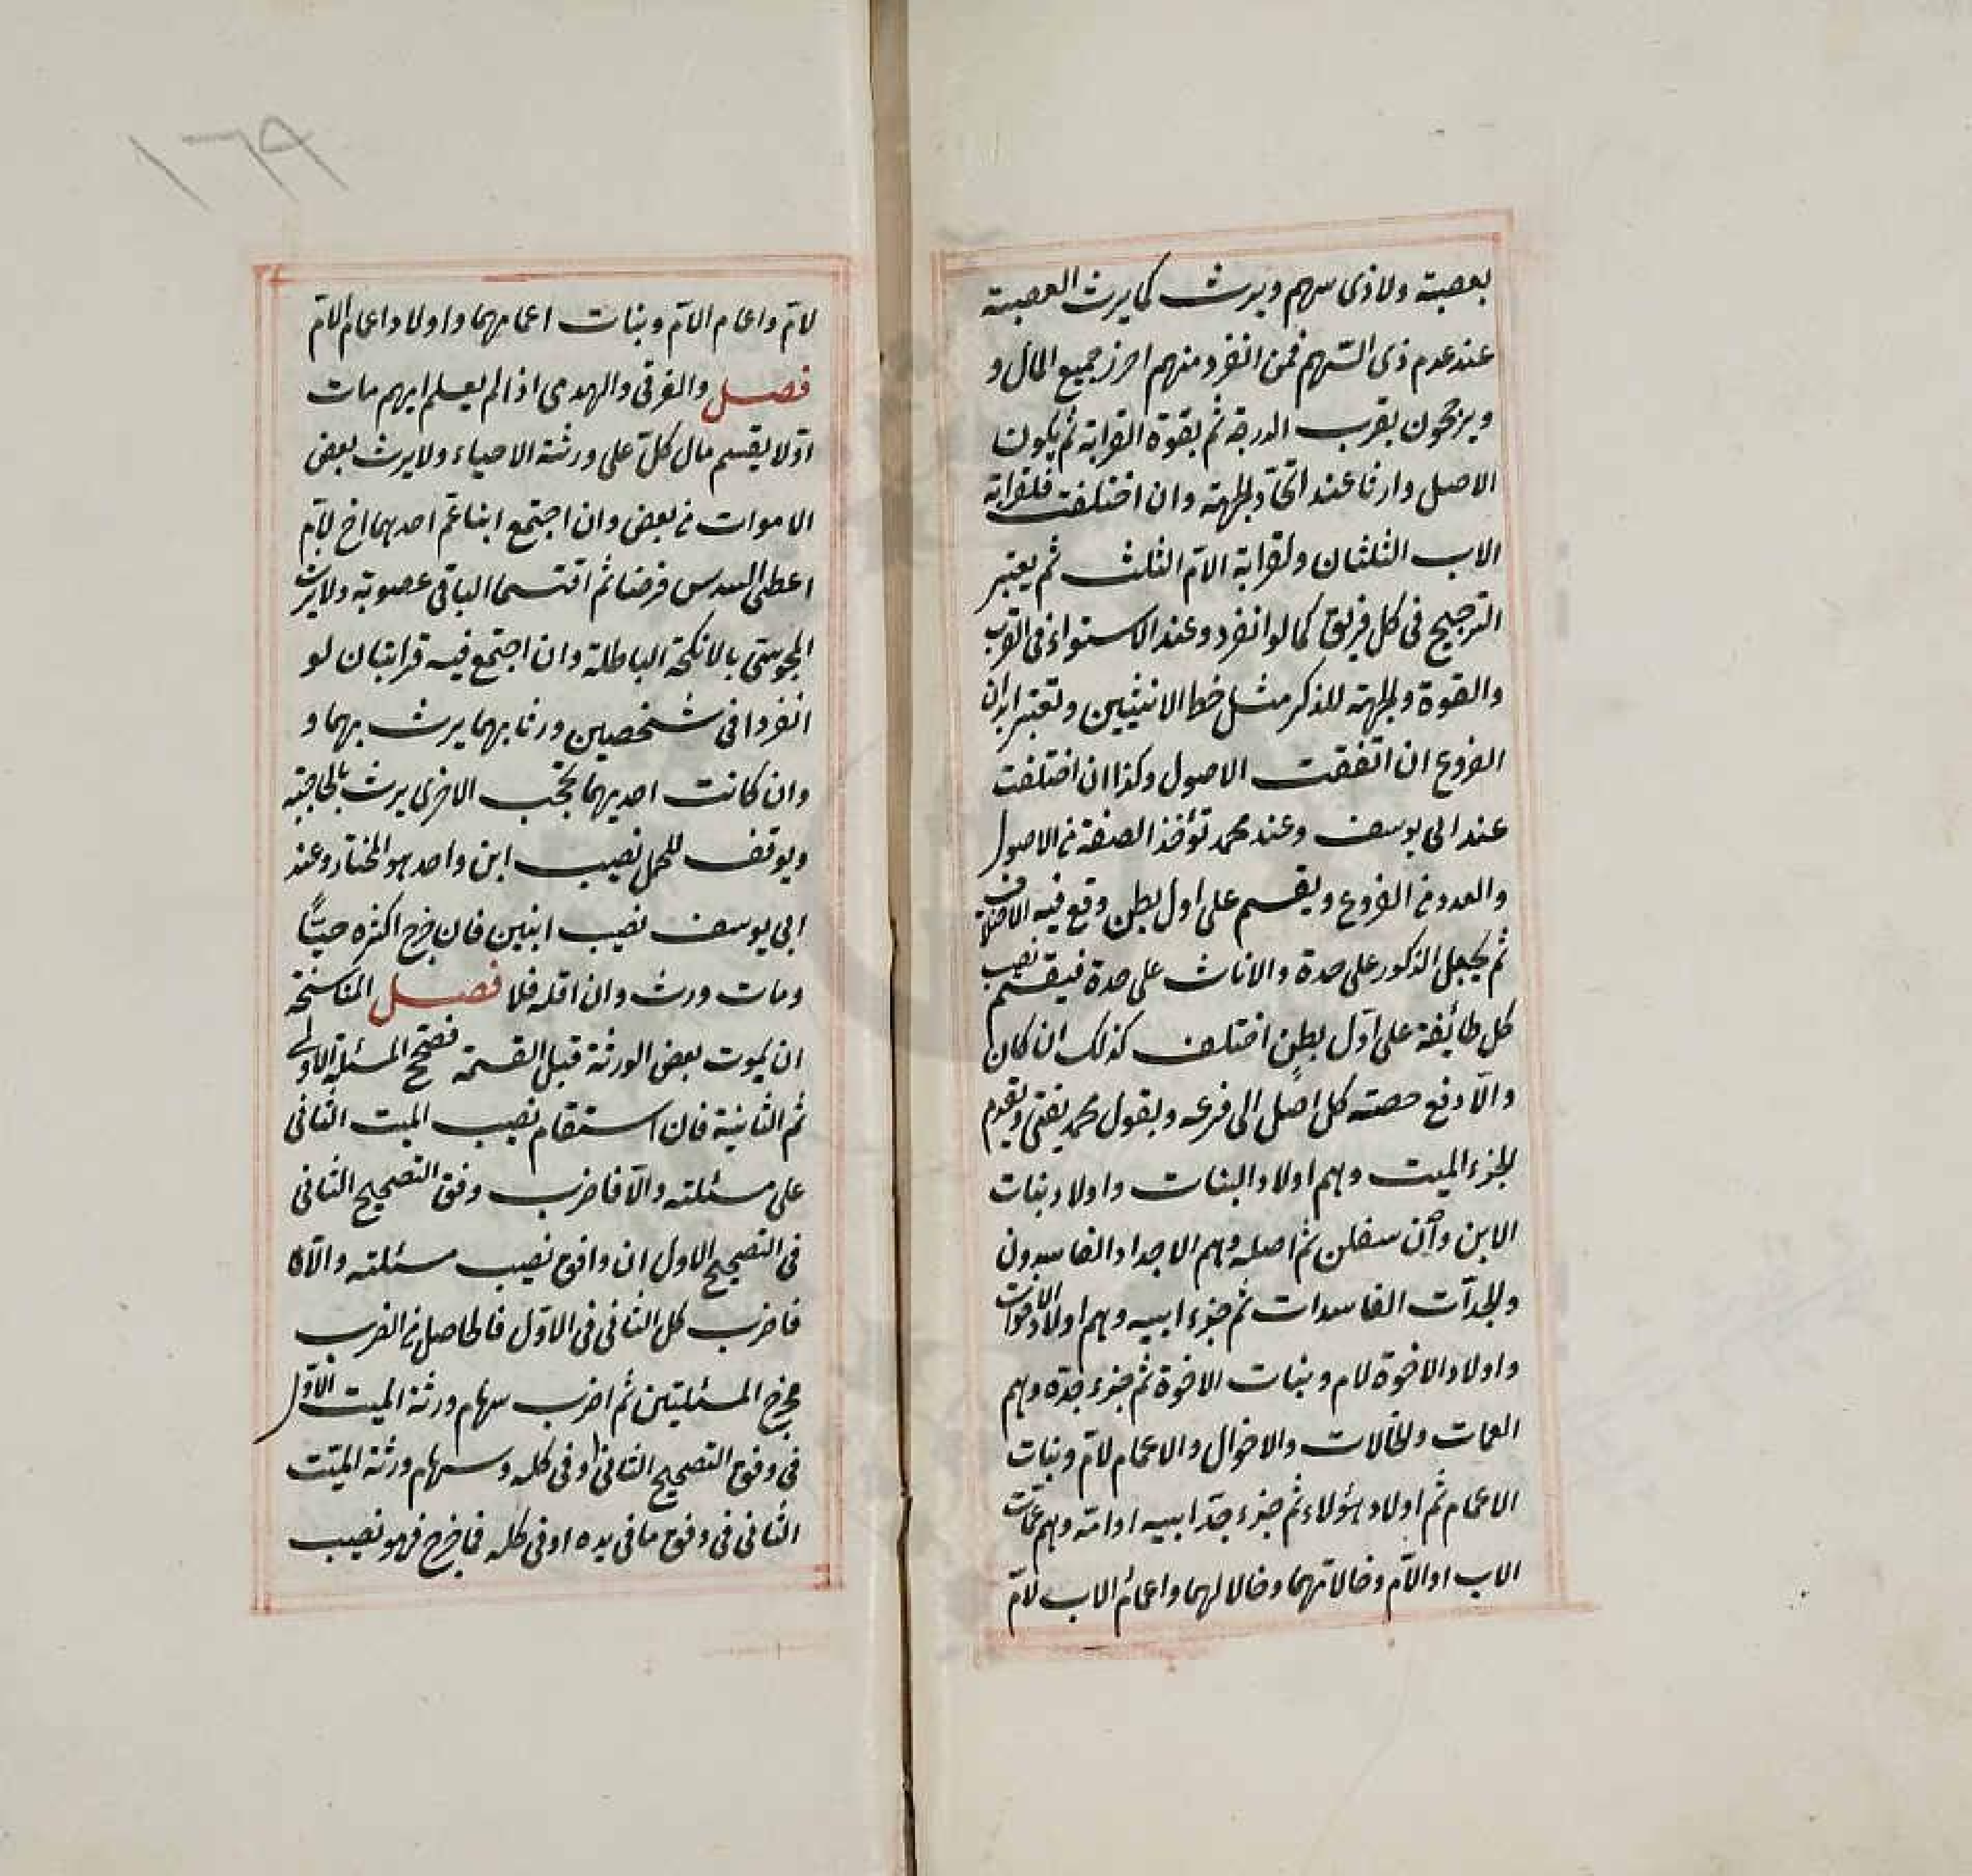 بعصبة ولا ذى سهم ويرث كما يرث العصبة
عند عدم ذى السّهم فمن انفرد منهم احرز جميع المال و
ويرجحون بقرب الدرجة ثم بقوة القرابة ثم بكون
الاصل وارثا عند اتحاد الجهة وان اختلفت فلقرابة
الاب الثلثان ولقرابة الام الثلث ثم يعتبر
الترجيح فى كل فريق كما لو انفرد وعند الاستواء فى القرب
والقوة والجهة للذكر مثل حظ الانثيين وتعتبر ابدان
الفروع ان اتفقت الاصول وكذا ان اختلفت
عند ابى يوسف وعند محمد تؤخذ الصفة من الاصول
والعدد من الفروع ويقسم على اول بطن وقع فيه الاختلاف
ثم يجعل الذكور على حدة والاناث على حدة فيقسم نصيب
كل طائفة على اوّل بطنٍ اختلف كذلك ان كان
والّا دفع حصته كل اصل الى فرعه وبقول محمد يفتى ويقدم
الجزء الميت وهم اولاد البنات واولاد بنات
الابن وان سفلن ثم اصله وهم الاجداد الفاسدون
والجدّات الفاسدات ثم جزء ابيه وهم اولاد الاخوات
واولاد الاخوة لام وبنات الاخوة ثم جزء جدّه وهم
العمات والخالات والاخوال والاعمام لامّ وبنات
الاعمام ثم اولاد هؤلاء ثم جزء جدّ ابيه او امّه وهم عمّات
الاب او الامّ وخالاتهما وخالا لهما واعمام الاب لامّ
١٦٩
لامّ واعمام الامّ وبنات اعمامهما واولاد اعمام الامّ
فصل والغرقى والهدمى اذا لم يعلم ايهم مات
اوّلا يقسم مال كلّ على ورثته الاحياء ولا يرث بعض
الاموات من بعض وان اجتمع ابنا عمّ احدهما اخ لامّ
اعطى السدس فرضا ثم اقتسما الباقى عصوبة ولا يرث
المجوسىّ بالانكحة الباطلة وان اجتمع فيه قرابتان لو
انفردا فى شخصين ورثا بهما يرث بهما و
وان كانت احديهما تحجب الاخرى يرث بالحاجبة
ويوقف للحمل نصيب ابن واحد هو المختار وعند
ابى يوسف نصيب ابنين فان خرج اكثره حيّاً
ومات ورث وان اقله فلا فصل المناسخة
ان يموت بعض الورثة قبل القسمة فصحح المسئلة الاولى
ثم الثانية فان استقام نصيب الميت الثانى
على مسئلته والّا فاضرب وفق التصحيح الثانى
فى التصحيح الاول ان وافق نصيب مسئلته والّا فا
فاضرب كل الثانى فى الاوّل فالحاصل من الضرب
مخرج المسئلتين ثم اضرب سهام ورثة الميت الاوّل
فى وفق التصحيح الثانى او فى كله وسهام ورثة الميّت
الثانى فى وفق ما فى يده او فى كله فما خرج فهو نصيب